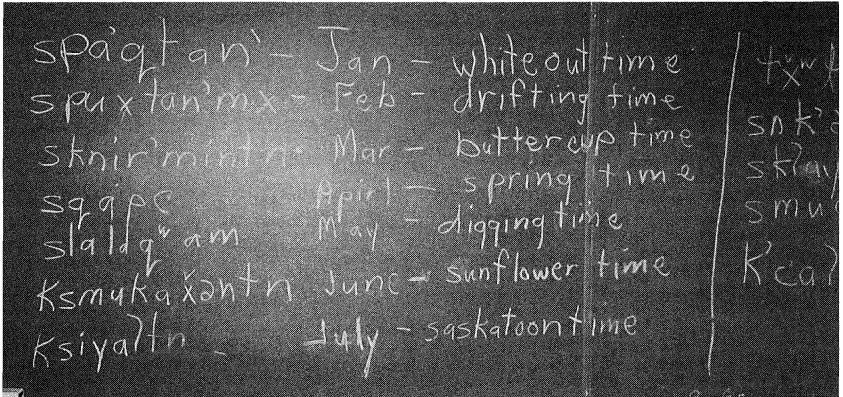 spa'qtan' - Jan - whiteout time
spuxtan'mx - Feb - drifting time
sknir'mintn - Mar - buttercup time
sqapc Apirl - spring time
slaldqʷam May - digging time
Ksmukaẍəntn June - sunflower time
Ksiyaʔtn - July - saskatoon time
K'caʔ